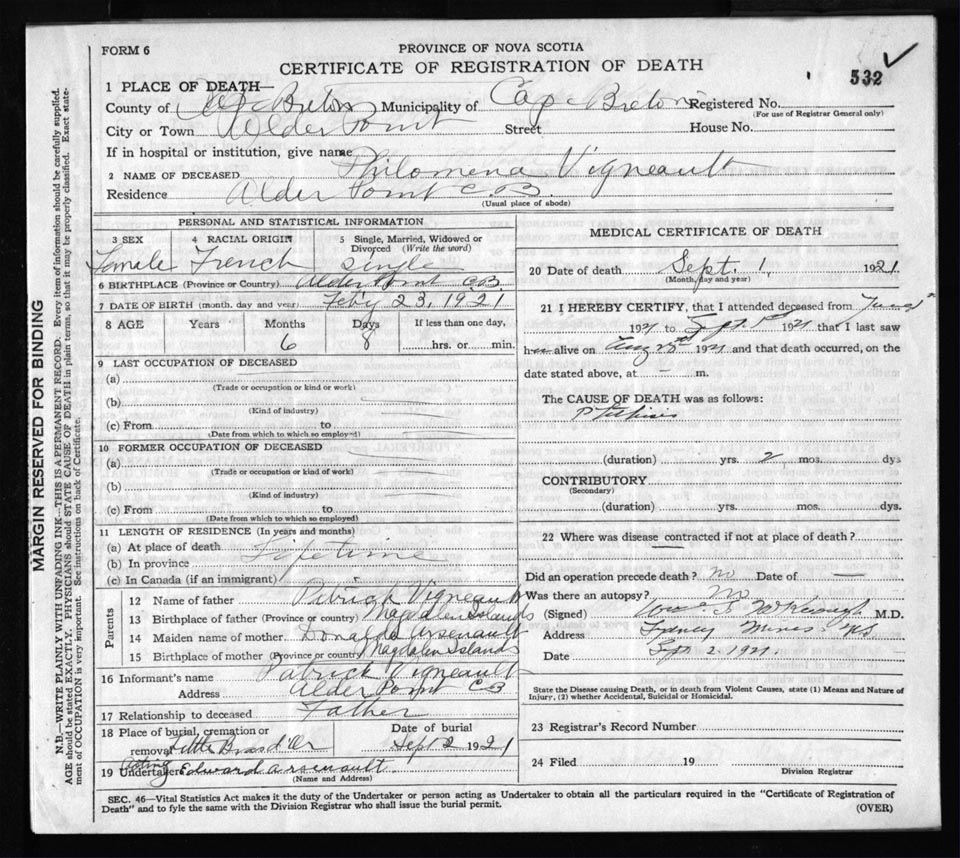 FORM 6
PROVINCE OF NOVA SCOTIA
CERTIFICATE OF REGISTRATION OF DEATH
532
1 PLACE OF DEATH—
County of Cape Breton Municipality of Cape Breton Registered No.
(For use of Registrar General only)
City or Town Alder Point Street House No.
If in hospital or institution, give name
2 NAME OF DECEASED Philomena Vigneault
Residence Alder Point C.B.
(Usual place of abode)
PERSONAL AND STATISTICAL INFORMATION
3 SEX 4 RACIAL ORIGIN 5 Single, Married, Widowed or
Divorced (Write the word)
Female French Single
6 BIRTHPLACE (Province or Country) Alder Point C.B.
7 DATE OF BIRTH (month, day and year) Feby 23, 1921
8 AGE Years Months Days If less than one day,
6 8 hrs. or min.
9 LAST OCCUPATION OF DECEASED
(a)
(Trade or occupation or kind or work)
(b)
(Kind of industry)
(c) From to
(Date from which to which so employed)
10 FORMER OCCUPATION OF DECEASED
(a)
(Trade or occupation or kind of work)
(b)
(Kind of industry)
(c) From to
(Date from which to which so employed)
11 LENGTH OF RESIDENCE (In years and months)
(a) At place of death Lifetime
(b) In province
(c) In Canada (if an immigrant)
Parents
12 Name of father Patrick Vigneault
13 Birthplace of father (Province or country) Magdalen Islands
14 Maiden name of mother Arsenault
15 Birthplace of mother (Province or country) Magdalen Islands
16 Informant's name Patrick Vigneault
Address Alder Point C.B
17 Relationship to deceased Father
18 Place of burial, cremation or Date of burial
removal Little Bras d'Or Sept 2 1921
acting
19 Undertaker Edward Arsenault
(Name and Address)
MEDICAL CERTIFICATE OF DEATH
20 Date of death Sept. 1, 1921
(Month, day and year)
21 I HEREBY CERTIFY, that I attended deceased from
1921 to Sept. 1st 1921 that I last saw
her alive on Aug 1921 and that death occurred, on the
date stated above, at — m.
The CAUSE OF DEATH was as follows:
(duration) yrs. 2 mos. dys
CONTRIBUTORY
(Secondary)
(duration) yrs. mos. dys.
22 Where was disease contracted if not at place of death?
Did an operation precede death? no Date of —
Was there an autopsy? No
(Signed) M.D.
Address Sydney Mines N.S
Date Sep. 2. 1921.
State the Disease causing Death, or in death from Violent Causes, state (1) Means and Nature of
Injury, (2) whether Accidental, Suicidal or Homicidal.
23 Registrar's Record Number
24 Filed 19
Division Registrar
SEC. 46—Vital Statistics Act makes it the duty of the Undertaker or person acting as Undertaker to obtain all the particulars required in the "Certificate of Registration of
Death" and to fyle the same with the Division Registrar who shall issue the burial permit.
(OVER)
MARGIN RESERVED FOR BINDING
N.B.—WRITE PLAINLY WITH UNFADING INK—THIS IS A PERMANENT RECORD. Every item of information should be carefully supplied.
AGE should be stated EXACTLY. PHYSICIANS should STATE CAUSE OF DEATH in plain terms, so that it may be properly classified. Exact state-
ment of OCCUPATION is very important. See instructions on back of Certificate.